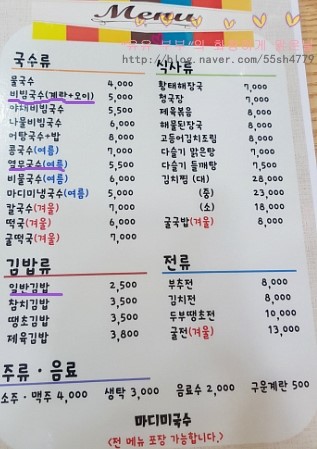 Menu
http://blog.naver.com/55sh4779
국수류
물국수 4,000
비빔국수(계란+오이) 5,000
야채비빔국수 5,500
나물비빔국수 6,000
어탕국수+밥 8,000
콩국수(여름) 7,000
열무국수(여름) 5,500
비물국수(여름) 6,000
마디미냉국수(여름) 5,000
칼국수(겨울) 7,000
떡국(겨울) 6,000
굴떡국(겨울) 7,000
식사류
황태해장국 7,000
청국장 7,000
제육볶음 8,000
해물된장국 8,000
고등어김치조림 8,000
다슬기 맑은탕 7,000
다슬기 들깨탕 7,500
김치찜 (대) 28,000
(중) 23,000
(소) 18,000
굴국밥(겨울) 8,000
김밥류
일반김밥 2,500
참치김밥 3,500
땡초김밥 3,500
제육김밥 3,800
전류
부추전 8,000
김치전 8,000
두부땡초전 10,000
굴전(겨울) 13,000
주류 · 음료
소주 · 맥주 4,000 생탁 3,000 음료수 2,000 구운계란 500
마디미국수
<전 메뉴 포장 가능합니다.>